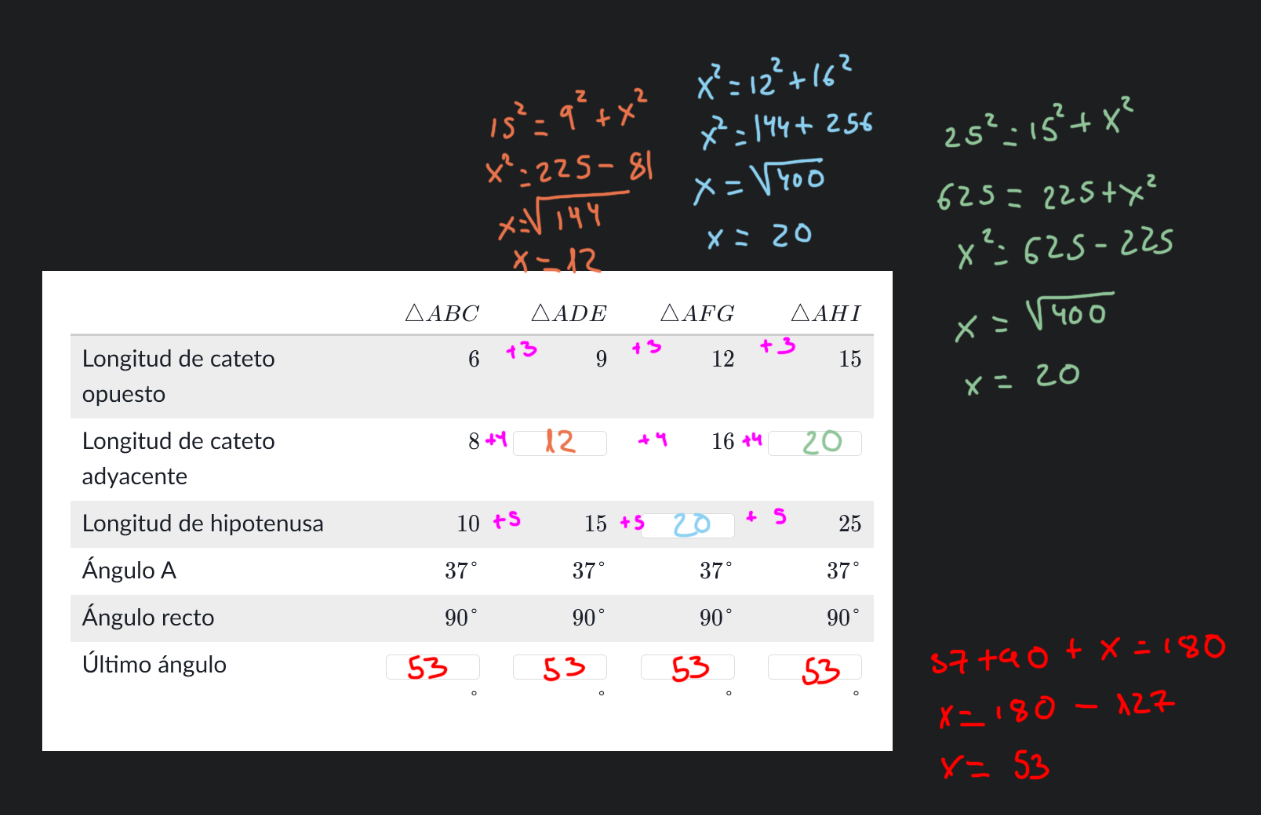 15² = 9² + x²
x² = 225 - 81
x = √144
x = 12
x² = 12² + 16²
x² = 144 + 256
x = √400
x = 20
25² = 15² + x²
625 = 225 + x²
x² = 625 - 225
x = √400
x = 20
△ABC △ADE △AFG △AHI
Longitud de cateto 6 +3 9 +3 12 +3 15
opuesto
Longitud de cateto 8 +4 12 +4 16 +4 20
adyacente
Longitud de hipotenusa 10 +5 15 +5 20 +5 25
Ángulo A 37° 37° 37° 37°
Ángulo recto 90° 90° 90° 90°
Último ángulo 53 53 53 53
° ° ° °
37 + 90 + x = 180
x = 180 - 127
x = 53